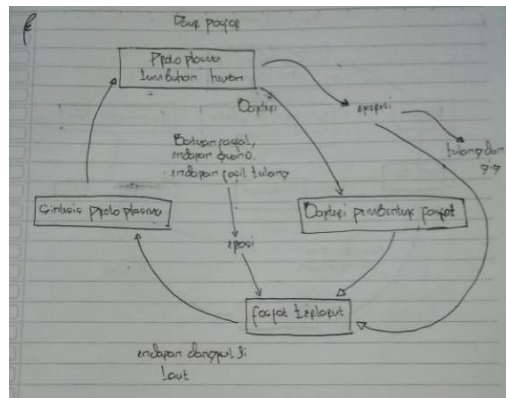 Daur fosfat
Proto plasma
tumbuhan hewan
Bakteri
ekskresi
tulang dan
gigi
Batuan fosfat,
endapan guano,
endapan fosil tulang
Sintesis Proto plasma
Bakteri pembentuk fosfat
erosi
fosfat terlarut
endapan dangkal di
laut